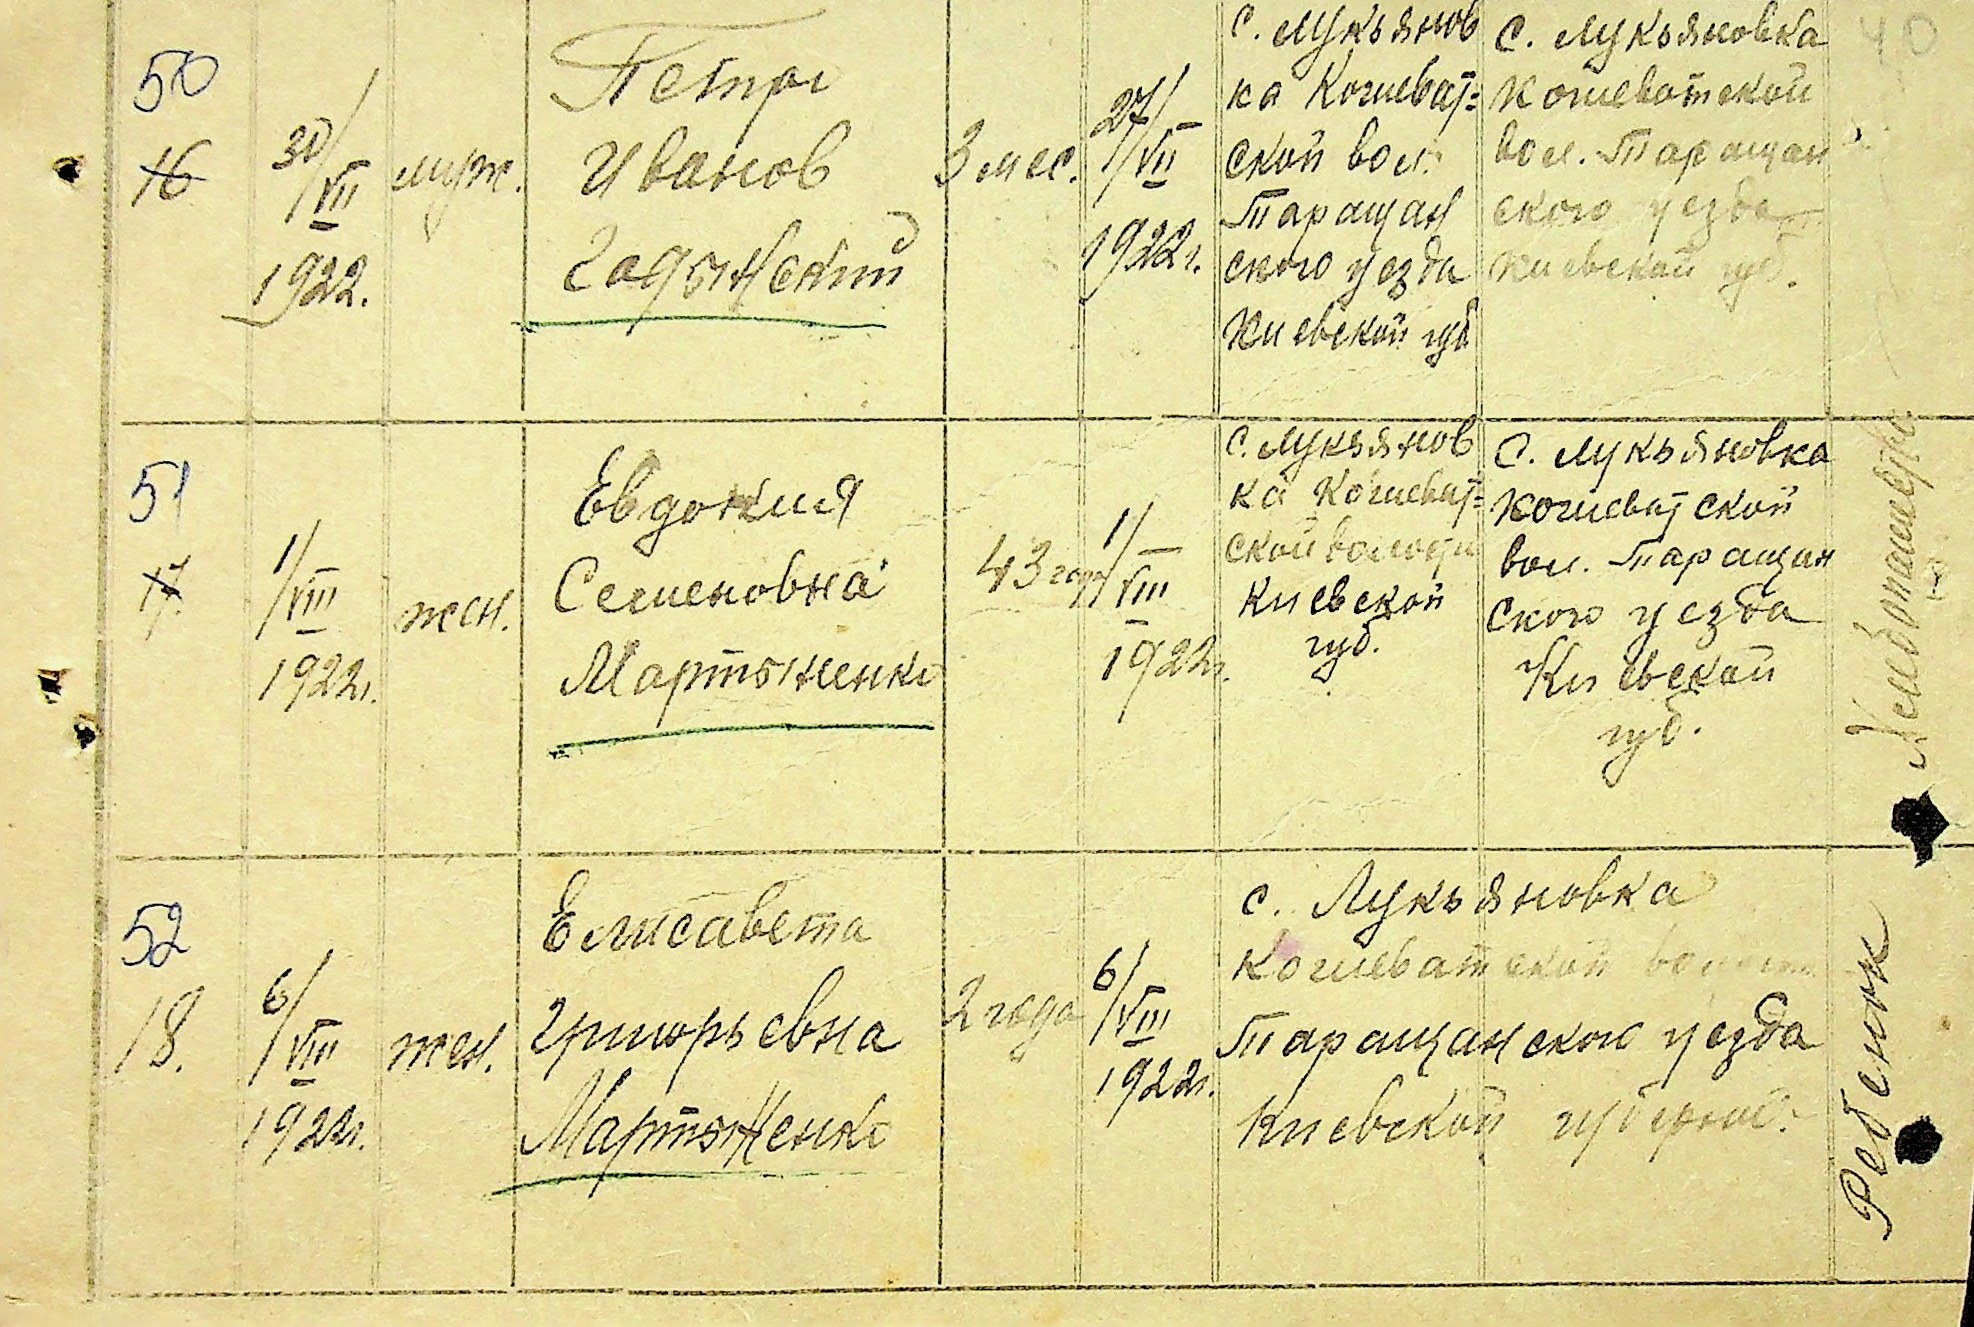 50
16
30/VII
1922.
муж.
Петр
Иванов
Гадынский
3 мес.
27/VII
1922г.
с. Лукьянов
ка Кошеват=
ской вол.
Таращан
ского уезда
Киевской губ
с. Лукьяновка
Кошеватской
вол. Таращан
ского уезда
Киевской губ.
40
51
17.
1/VIII
1922г.
жен.
Евдокия
Семеновна
Мартыненко
43 года
1/VIII
1922г.
с. Лукьянов
ка Кошеват=
ской волости
Киевской
губ.
с. Лукьяновка
Кошеватской
вол. Таращан
ского уезда
Киевской
губ.
52
18.
6/VIII
1922г.
жен.
Елисавета
Григорьевна
Мартыненко
2 года
6/VIII
1922г.
с. Лукьяновка
Кошеватской волости
Таращанского уезда
Киевской губернии.
Ребенок